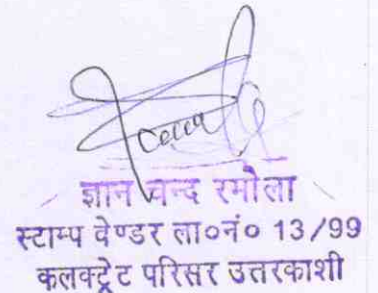 ज्ञान चन्द रमोला
स्टाम्प वेण्डर ला०नं० 13/99
कलक्ट्रेट परिसर उतरकाशी